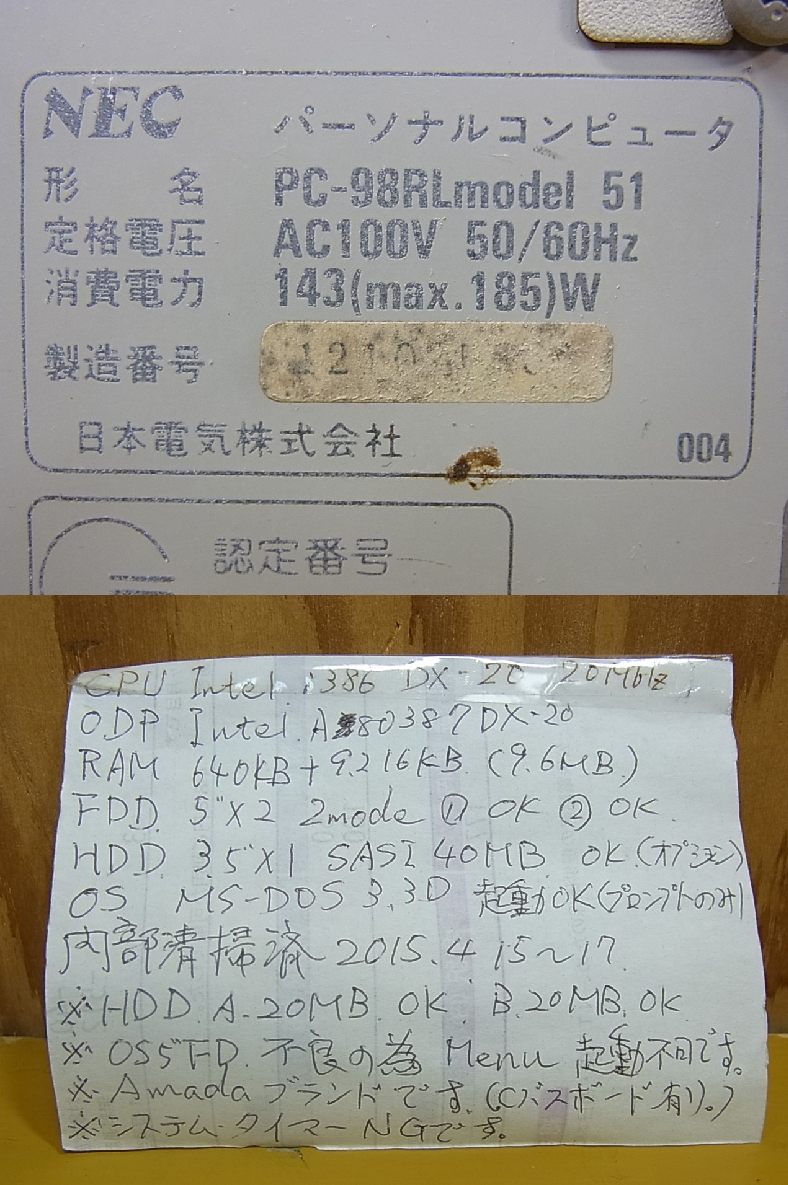 NEC パーソナルコンピュータ
形名 PC-98RLmodel 51
定格電圧 AC100V 50/60Hz
消費電力 143(max.185)W
製造番号
日本電気株式会社 004
認定番号
CPU Intel i386 DX-20 20MHz
ODP Intel A80387DX-20
RAM 640KB+9.216KB (9.6MB)
FDD 5"×2 2mode ① OK ② OK
HDD 3.5"×1 SASI 40MB OK (オプション)
OS MS-DOS 3.3D 起動OK(プロンプトのみ)
内部清掃済 2015.4 15～17
※HDD.A-20MB OK. B.20MB.OK
※OS5"FD.不良の為 Menu 起動不可です。
※Amadaブランドです.(Cバスボード有り。)
※システム・タイマーNGです。